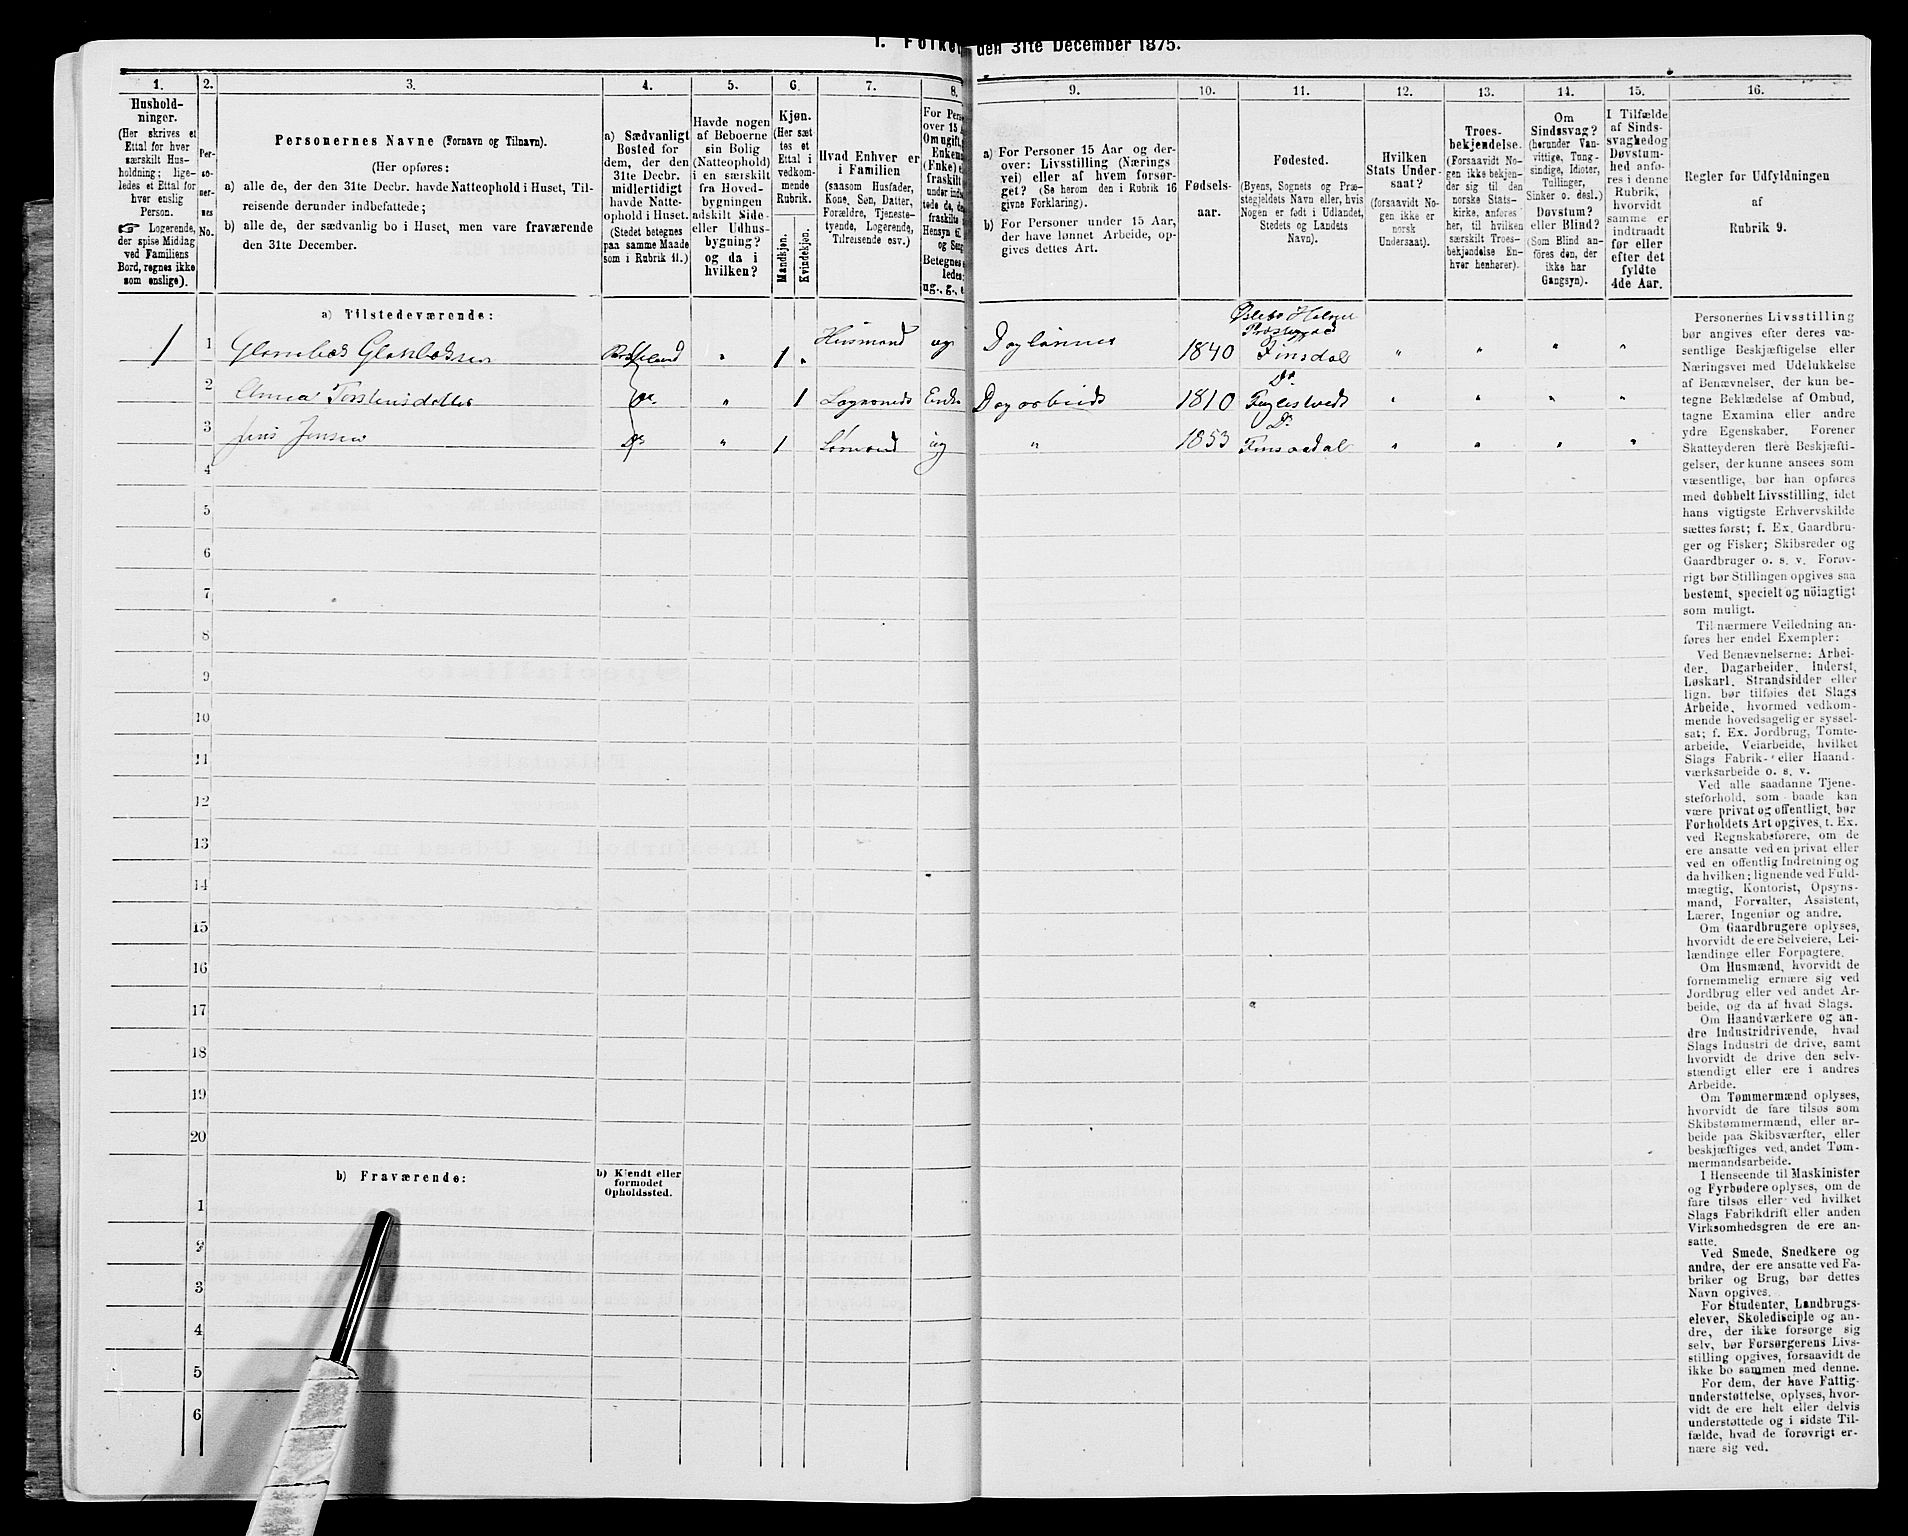 1. Folket
den 31te December 1875.
1. 2. 3. 4. 5. 6. 7. 8. 9. 10. 11. 12. 13. 14. 15. 16.
Hushold-
ninger.
(Her skrives et
Ettal for hver
særskilt Hus-
holdning; lige-
ledes et Ettal for
hver enslig
Person.
☞ Logerende,
der spise Middag
ved Familiens
Bord, regnes ikke
som enslige).
Per-
so-
ner-
nes
No.
Personernes Navne (Fornavn og Tilnavn).
(Her opføres:
a) alle de, der den 31te Decbr. havde Natteophold i Huset, Til-
reisende derunder indbefattede;
b) alle de, der sædvanlig bo i Huset, men vare fraværende
den 31te December.
a) Sædvanligt
Bosted for
dem, der den
31te Decbr.
midlertidigt
havde Natte-
ophold i Huset.
(Stedet betegnes
paa samme Maade
som i Rubrik 11.)
Havde nogen
af Beboerne
sin Bolig
(Natteophold)
i en særskilt
fra Hoved-
bygningen
adskilt Side-
eller Udhus-
bygning?
og da i
hvilken?
Kjøn.
(Her sæt
tes et
Ettal i
vedkom-
mende
Rubrik.
Mandkjøn.
Kvindekjøn.
Hvad Enhver er
i Familien
(saasom Husfader,
Kone, Søn, Datter,
Forældre, Tjeneste-
tyende, Logerende,
Tilreisende osv.)
For Pers
over 15 A
Om ugift,
Enkema
(Enke) e
fraskilt
under indb
tede de, d
fraskilte
Hensyn ti
og Seng
Betegnes
ledes:
ug., g., e
a) For Personer 15 Aar og der-
over: Livsstilling (Nærings
vei) eller af hvem forsør-
get? (Se herom den i Rubrik 16
givne Forklaring).
b) For Personer under 15 Aar,
der have lønnet Arbeide, op-
gives dettes Art.
Fødsels-
aar.
Fødested.
(Byens, Sognets og Præ-
stegjeldets Navn eller, hvis
Nogen er født i Udlandet,
Stedets og Landets
Navn).
Hvilken
Stats Under-
saat?
(forsaavidt No-
gen ikke er
norsk
Undersaat).
Troes-
bekjendelse.
(Forsaavidt No-
gen ikke bekjen-
der sig til den
norske Stats-
kirke, anføres
her, til hvilken
særskilt Troes-
bekjendelse En-
hver henhører).
Om
Sindssvag?
(herunder Van-
vittige, Tung-
sindige, Idioter,
Tullinger,
Sinker o. desl.)
Døvstum?
eller Blind?
(Som Blind an-
føres den, der
ikke har
Gangsyn).
I Tilfælde
af Sinds-
svaghed og
Døvstum-
hed anfø-
res i denne
Rubrik,
hvorvidt
samme er
indtraadt
før eller
efter det
fyldte
4de Aar.
Regler for Udfyldningen
af
Rubrik 9.
a) Tilstedeværende:
Øslebø Halsaa
Præstegjæld
1 1 Glambek Glambeksen 1 Husmand ug Daglønner 1840 Finsdal
Do
2 Anna Torstensdatter Do 1 Enke Dagarbeide 1810 Fuglestvedt
Do
3 Jens Jensen Do 1 ug 1853 Finsaadal
4
5
6
7
8
9
10
11
12
13
14
15
16
17
18
19
20
b) Fraværende:
b) Kjendt eller
formodet
Opholdssted.
1
2
3
4
5
6
Personernes Livsstilling
bør angives efter deres væ-
sentlige Beskjæftigelse eller
Næringsvei med Udelukkelse
af Benævnelser, der kun be-
tegne Beklædelse af Ombud,
tagne Examina eller andre
ydre Egenskaber. Forener
Skatteyderen flere Beskjæfti-
gelser, der kunne ansees som
væsentlige, bør han opføres
med dobbelt Livsstilling, idet
hans vigtigste Erhvervskilde
sættes først; f. Ex. Gaardbru-
ger og Fisker; Skibsreder og
Gaardbruger o. s. v. Forøv-
rigt bør Stillingen opgives saa
bestemt, specielt og nöiagtigt
som muligt.
Til nærmere Veiledning an-
føres her endel Exempler:
Ved Benævnelserne: Arbei-
der, Dagarbeider, Inderst,
Løskarl, Strandsidder eller
lign. bør tilføies det Slags
Arbeide, hvormed vedkom-
mende hovedsagelig er syssel-
sat; f. Ex. Jordbrug, Tomte-
arbeide, Veiarbeide, hvilket
Slags Fabrik- eller Haand-
værksarbeide o. s. v.
Ved alle saadanne Tjene-
steforhold, som baade kan
være privat og offentligt, bør
Forholdets Art opgives, t. Ex.
ved Regnskabsførere, om de
ere ansatte ved en privat eller
ved en offentlig Indretning og
da hvilken; lignende ved Fuld-
mægtig, Kontorist, Opsyns-
mand, Forvalter, Assistent,
Lærer, Ingeniør og andre.
Om Gaardbrugere oplyses,
hvorvidt de ere Selveiere, Lei-
lændinge eller Forpagtere.
Om Husmænd, hvorvidt de
fornemmelig ernære sig ved
Jordbrug eller ved andet Ar-
beide, og da af hvad Slags.
Om Haandværkere og an-
dre Industridrivende, hvad
Slags Industri de drive, samt
hvorvidt de drive den selv-
stændigt eller ere i andres
Arbeide.
Om Tømmermænd oplyses,
hvorvidt de fare tilsøs som
Skibstømmermænd, eller ar-
beide paa Skibsværfter, eller
beskjæftiges ved andet Tøm-
mermandsarbeide.
I Henseende til Maskinister
og Fyrbødere oplyses, om de
fare tilsøs eller ved hvilket
Slags Fabrikdrift eller anden
Virksomhedsgren de ere an-
satte.
Ved Smede, Snedkere og
andre, der ere ansatte ved Fa-
briker og Brug, bør dettes
Navn opgives.
For Studenter, Landbrugs-
elever, Skoledisciple og an-
dre, der ikke forsørge sig
selv, bør Forsørgerens Livs-
stilling opgives, forsaavidt de
ikke bo sammen med denne.
For dem, der have Fattig-
understøttelse, oplyses, hvor-
vidt de ere helt eller delvis
understøttede og i sidste Til-
fælde, hvad de forøvrigt er-
nære sig ved.